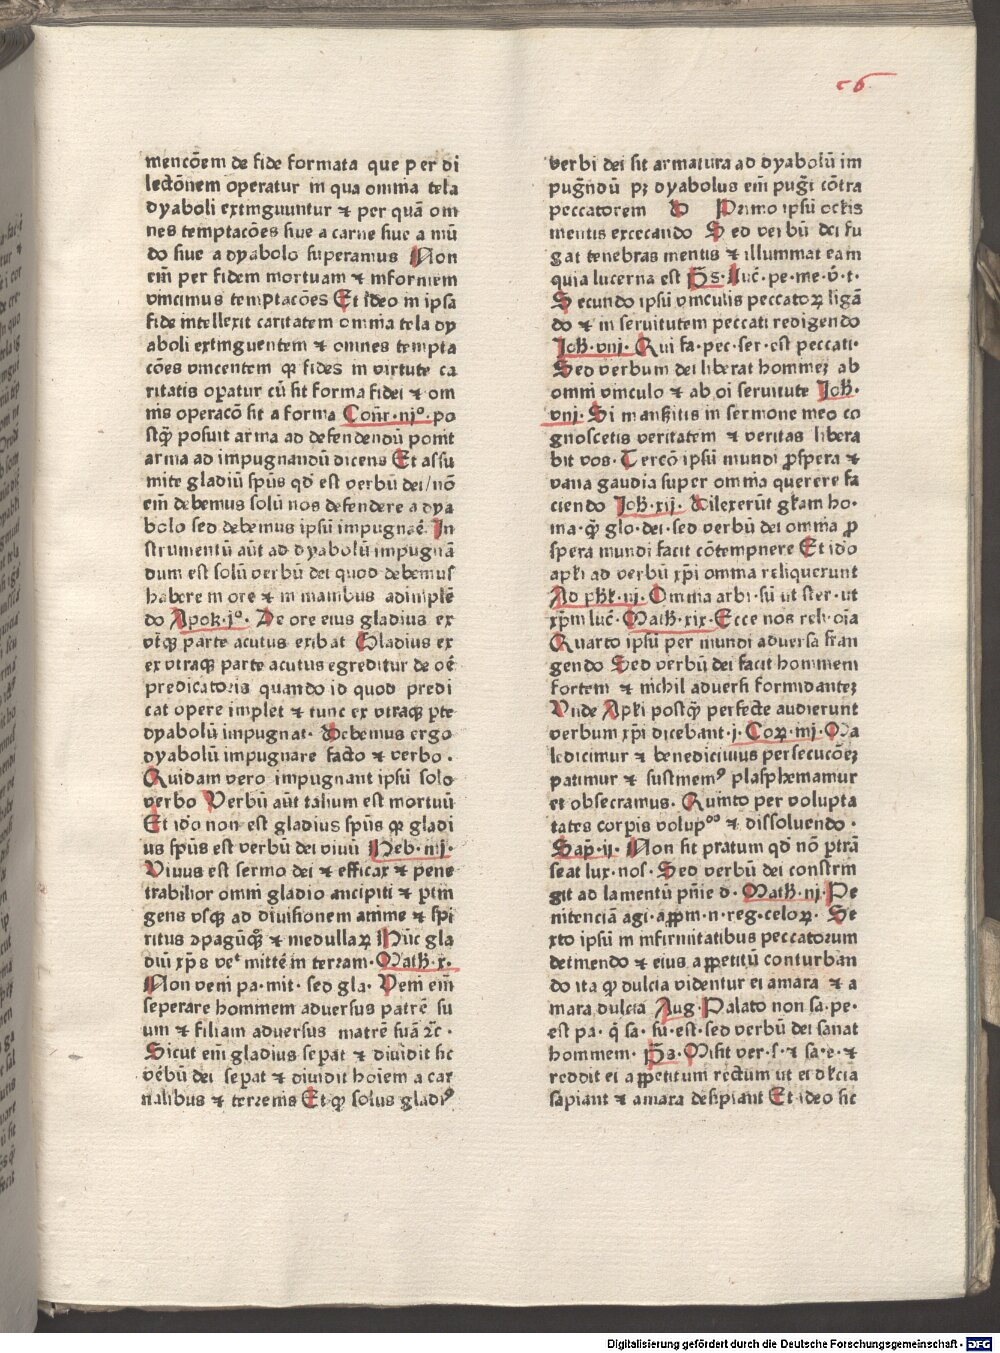 56
mencõem de fide formata que per di
lectõnem operatur in qua omnia tela
dyaboli extinguuntur ⁊ per quã om
nes temptacões siue a carne siue a mũ
do siue a dyabolo superamus Non
em̃ per fidem mortuam ⁊ informem
vincimus temptacões Et ideo in ipsa
fide intellexit caritatem omnia tela dy
aboli extinguentem ⁊ omnes tempta
cões vincentem qꝫ fides in virtute ca
ritatis opatur cũ sit forma fidei ⁊ om
nis operacõ sit a forma Coñr·nio· po
stꝙ̃ posuit arma ad defendendũ ponit
arma ad impugnandũ dicens Et assu
mite gladiũ spũs qd̃ est verbũ dei/nõ
em̃ debemus solũ nos defendere a dya
bolo sed debemus ipsũ impugnaẽ· In
strumentũ aũt ad dyabolũ impugnã
dum est solũ verbũ dei quod debemus
habere in ore ⁊ in manibus adimplẽ
do Apok·jo· De ore eius gladius ex
vt̃qꝫ parte acutus exibat Gladius ex
ex vtraqꝫ parte acutus egreditur de oẽ
predicatoris quando id quod predi
cat opere implet ⁊ tunc ex vtraqꝫ pte
dyabolũ impugnat· Debemus ergo
dyabolũ impugnare facto ⁊ verbo·
Quidam vero impugnant ipsũ solo
verbo Verbũ aũt talium est mortuũ
Et ido non est gladius spũs qꝫ gladi
us spũs est verbũ dei viuũ Heb·iiij·
Viuus est sermo dei ⁊ efficax ⁊ pene
trabilior omni gladio ancipiti ⁊ ptin
gens vsqꝫ ad diuisionem anime ⁊ spi
ritus ꝯpagũqꝫ ⁊ medullaꝝ Hũc gla
diũ xp̃s veᵗ mittẽ in terram·Math·x·
Non veni pa·mit· sed gla· Veni em̃
seperare hominem aduersus patrẽ su
um ⁊ filiam aduersus matrẽ suã ⁊c̃·
Sicut em̃ gladius sepat ⁊ diuidit sic
vẽbũ dei sepat ⁊ diuidit hoiem a car
nalibus ⁊ terrenis Et qꝫ solus gladiꝰ
verbi dei sit armatura ad dyabolũ im
pug̃ndũ pꝫ dyabolus em̃ pug̃t cõtra
peccatorem Primo ipsũ oclis
mentis excecando Sed verbũ dei fu
gat tenebras mentis ⁊ illuminat eam
quia lucerna est Ps̃·luc̃·pe·me·v̂·t·
Secundo ipsũ vinculis peccatoꝝ ligã
do ⁊ in seruitutem peccati redigendo
Joh̃·viij· Qui fa·pec·ser·est peccati·
Sed verbum dei liberat homineꝫ ab
omni vinculo ⁊ ab oi seruitute Joh̃·
viij· Si mansitis in sermone meo co
gnoscetis veritatem ⁊ veritas libera
bit vos· Tercõ ipsũ mundi ꝓspera ⁊
vana gaudia super omnia querere fa
ciendo Joh̃·xij· Dilexerũt gl̃am ho·
ma·ꝙ̃ glo·dei·sed verbũ dei omnia ꝓ
spera mundi facit cõtempnere Et ido
apl̃i ad verbũ xp̃i omnia reliquerunt
Ad ph̃l·iij· Omnia arbi·sũ ut ster·ut
xp̃m luc̃·Math·xix· Ecce nos reli·oĩa
Quarto ipsũ per mundi aduersa fran
gendo Sed verbũ dei facit hominem
fortem ⁊ nichil aduersi formidanteꝫ
Vnde Apl̃i postꝙ̃ perfecte audierunt
verbum xp̃i dicebant·j·Coꝝ·iiij·Ma
ledicimur ⁊ benedicimus persecucõeꝫ
patimur ⁊ sustinemꝰ plasphemamur
et obsecramus· Quinto per volupta
tates corpis volupᵒˢ ⁊ dissoluendo·
Sap·ij· Non sit pratum qd̃ nõ ptrã
seat lux·nos· Sed verbũ dei constrin
git ad lamentũ pñie d·Math·iij·Pe
nitenciã agi·appm·n·reg·celoꝝ· Se
xto ipsũ in infirmitatibus peccatorum
detinendo ⁊ eius appetitũ conturban
do ita ꝙ dulcia videntur ei amara ⁊ a
mara dulcia Aug·Palato non sa·pe·
est pa·q̃ sa·su·est·sed verbũ dei sanat
hominem· Ps̃·Misit ver·s·⁊ sa·e·⁊
reddit ei appetitum rectum ut ei dl̃cia
sapiant ⁊ amara desipiant Et ideo sic
Digitalisierung gefördert durch die Deutsche Forschungsgemeinschaft - DFG